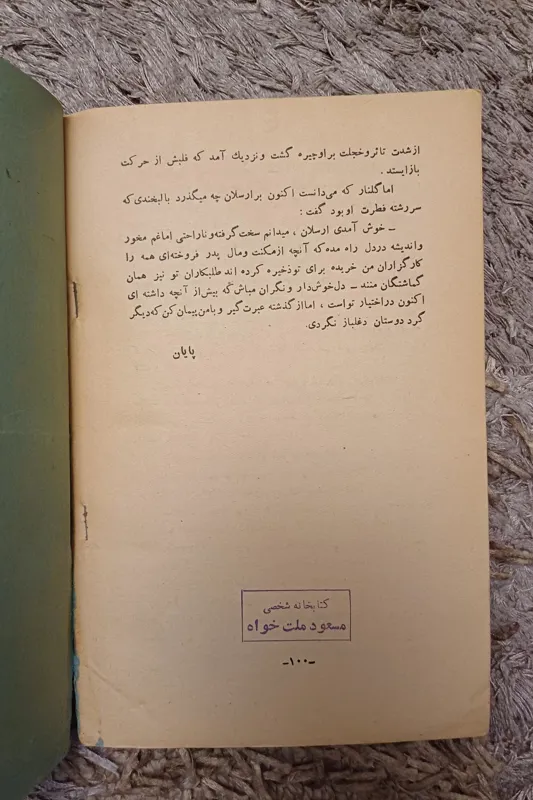 ازشدت تاثر وخجلت براوچیره گشت ونزدیك آمد که قلبش از حرکت
بازایستد .
اماگلنار که می‌دانست اکنون برارسلان چه میگذرد بالبخندی‌که
سررشته فطرت اوبود گفت :
ـ خوش آمدی ارسلان ، میدانم سخت‌گرفته‌وناراحتی اماغم مخور
واندیشه دردل راه مده‌که آنچه ازمکنت ومال پدر فروخته‌ای همه را
کارگزاران من خریده برای توذخیره کرده اند طلبکاران تو نیز همان
گماشتگان منند ـ دل‌خوش‌دار و نگران مباش‌که بیش‌از آنچه داشته ای
اکنون دراختیار تواست ، اماازگذشته عبرت‌گیر و بامن‌پیمان‌کن‌که‌دیگر
گرد دوستان دغلباز نگردی.
پایان
کتابخانه شخصی
مسعود ملت خواه
ـ۱۰۰ـ